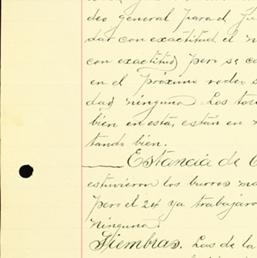 deo general para d
dar con exactitud el
con exactitud) pero si c
en el próximo rodeo s
dad ninguna Los tor
bien en esta, están en
tando bien.
Estancia de C
estuvieron los burros ma
pero el 24 ya trabajaro
ninguna.
Siembras. Las de la